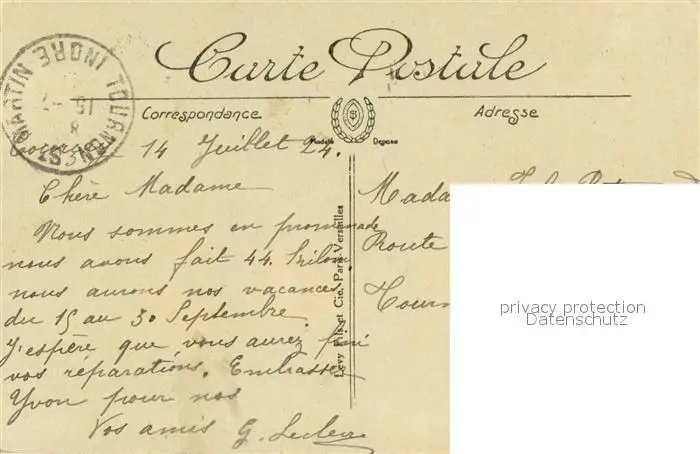 Carte Postale
Correspondance
Adresse
TOURNON ST MARTIN INDRE
Modèle Déposé
14 Juillet 24.
Chère Madame
Nous sommes en promenade
nous avons fait 44.
nous aurons nos vacances
du 15 au 30 Septembre
J'espère que vous aurez fini
vos réparations. Embrassez
Yvon pour nos
Vos amis G. Leclerc
Levy Fils et Cie, Paris-Versailles
Route
privacy protection
Datenschutz